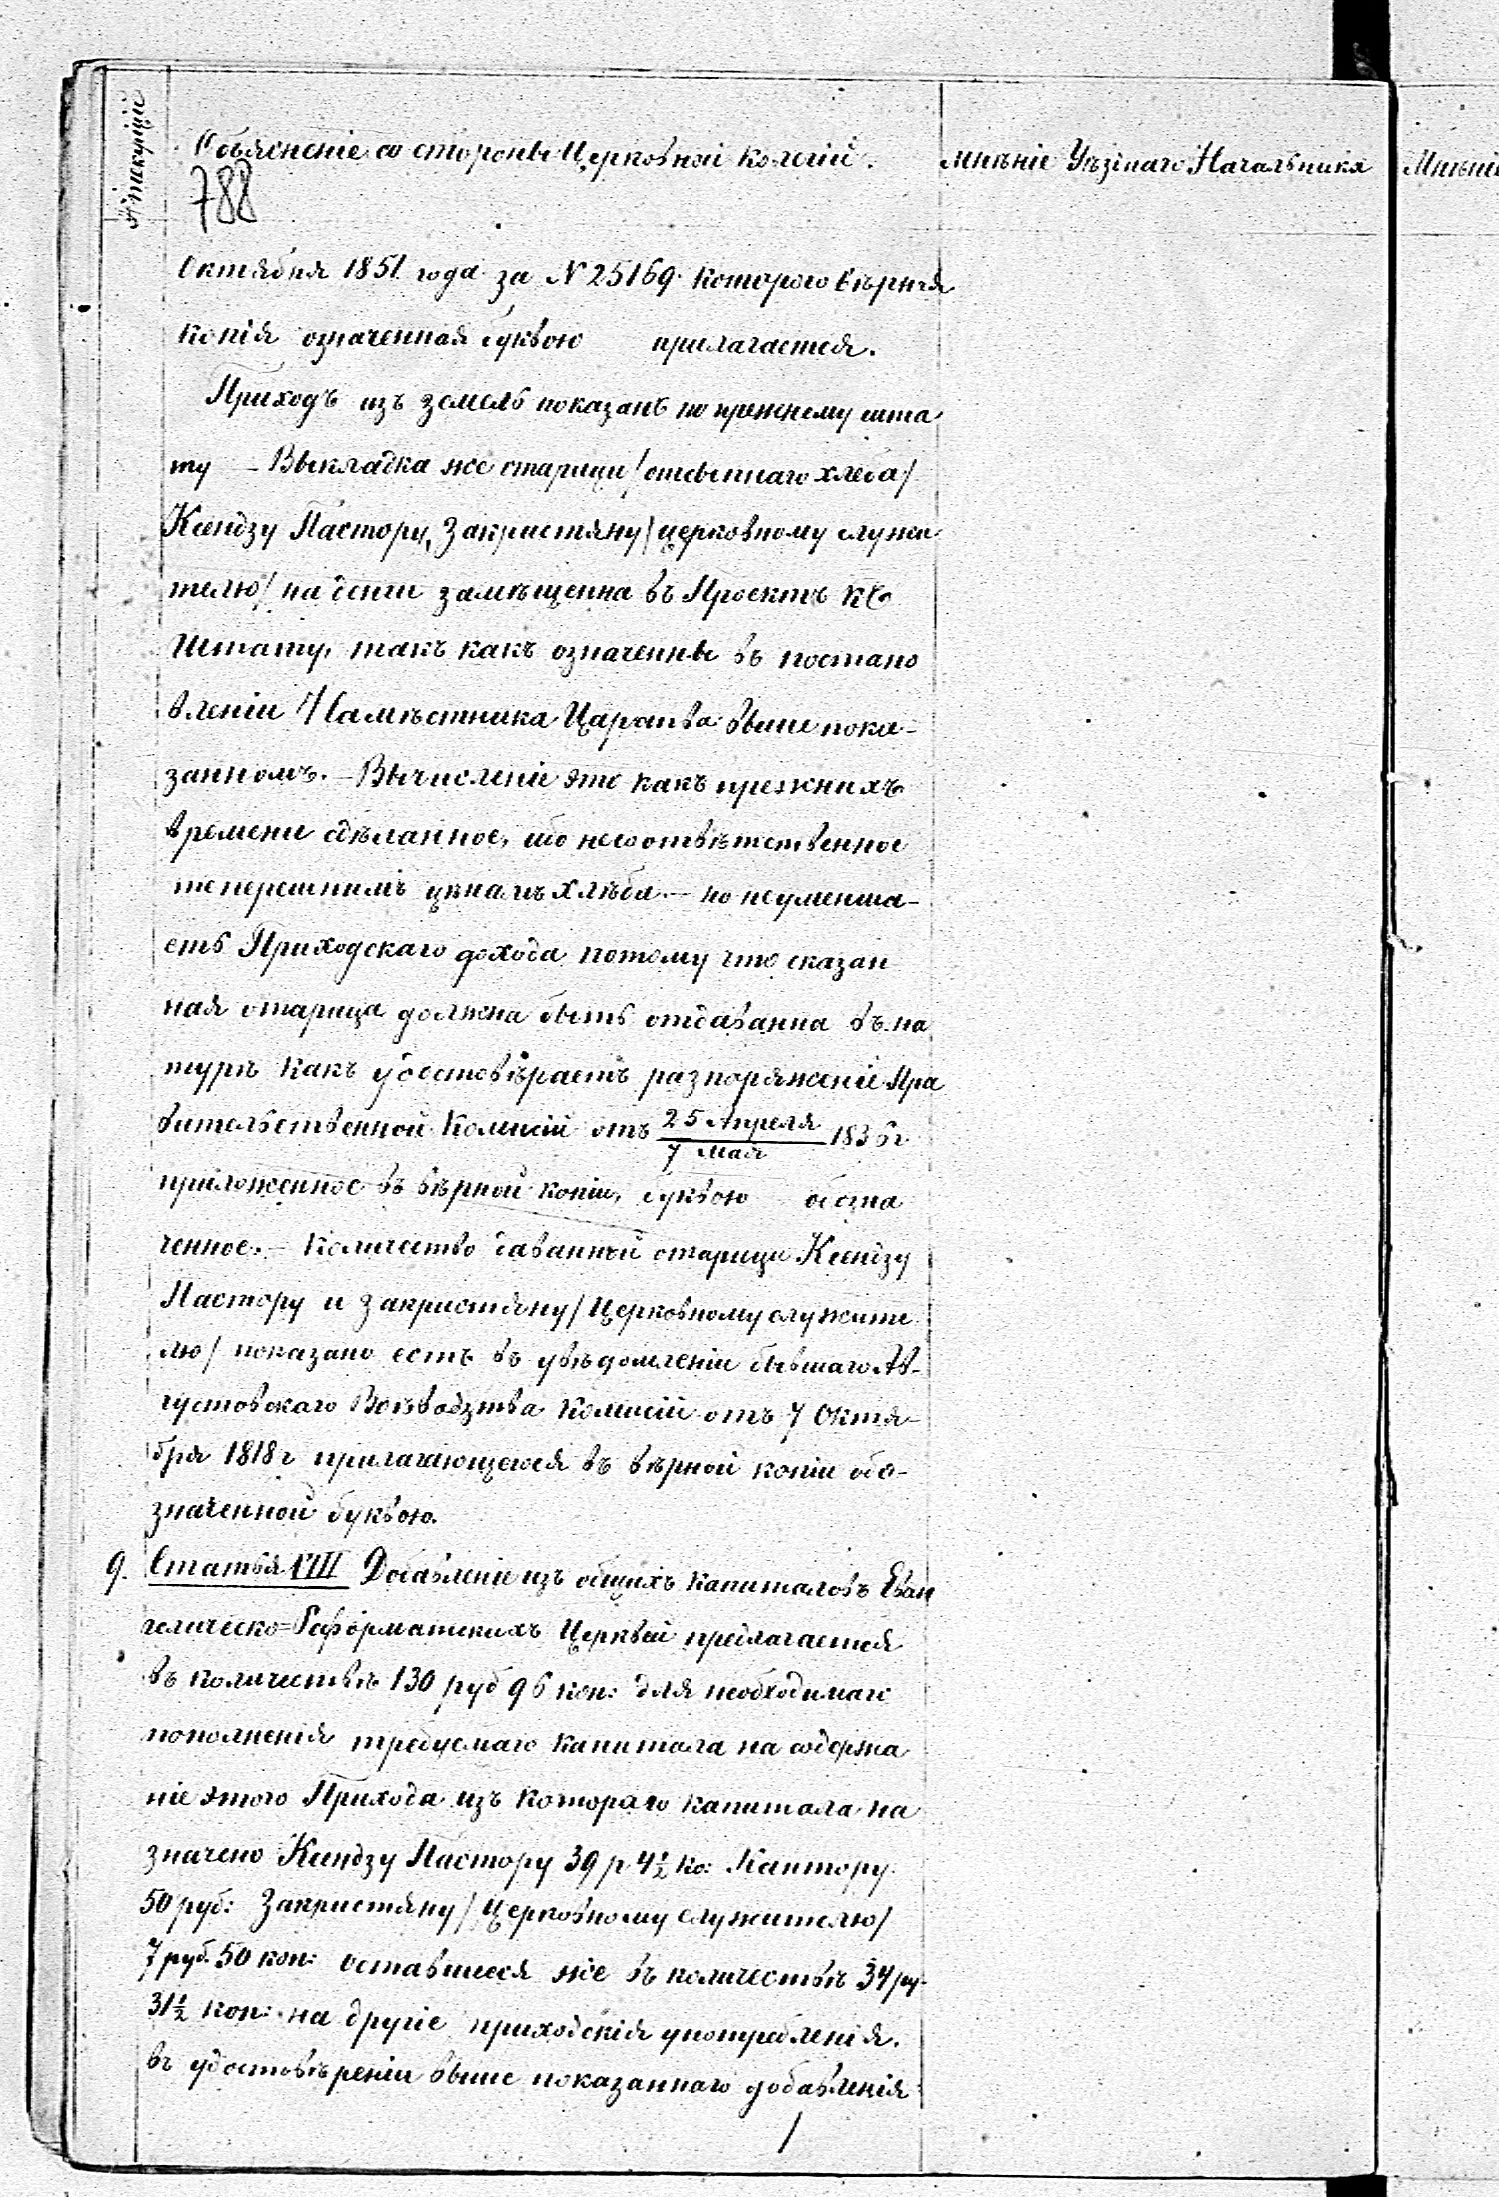 № текущій
Объясненіе со стороны Церковной Колегіи.
мнѣніе Уѣзднаго Начальника
Мнѣніе
788
Октября 1851 года за № 25169 которого вѣрная
копія означенная буквою прилагается.
Приходъ изъ земель показанъ по прежнему шта
ту – Выкладка же старицы /отсыпнаго хлеба/
Ксендзу Пастору, Закристяну /церковному служи
телю/ на денги замѣщенна въ Проектъ ко
Штату, такъ какъ означенны въ постано
вленіи Намѣстника Царства выше пока-
занномъ. – Вычисленіе это какъ прежнихъ
времени сдѣланное, ибо несоотвѣтственное
теперешнимъ цѣнамъ хлѣба – но неуменша-
етъ Приходскаго дохода потому что сказан
ная старица должна быть отдаванна въ на
турѣ какъ удостовѣраетъ разпоряженіе Пра
вительственной Комисіи отъ 25 Апреля / 7 мая 1836 г
приложенное въ вѣрной копіи, буквою обозна
ченное. – Количество даванной старицы Ксендзу
Пастору и Закристяну /Церковному служите
лю/ показано есть въ увѣдомленіи бывшаго Ав-
густовскаго Воѣводзтва Комисіи отъ 7 Октя-
бря 1818 г прилагающегося въ вѣрной копіи обо-
значенной буквою.
9. Статья VIII Добавленіе изъ общихъ капиталовъ Еван
гелическо=Реформатскихъ Церквей предлагается
въ количествѣ 130 руб 96 коп: для необходимаго
пополненія требуемаго капитала на содержа
ніе этого Прихода изъ котораго капитала на
значено Ксендзу Пастору 39 р 4½ ко: Кантору
50 руб: Закристяну /Церковному служителю/
7 руб. 50 коп: оставшееся же въ количествѣ 34 ру
31½ коп: на другіе приходскія употребленія.
въ удостовѣреніи выше показаннаго добавленія